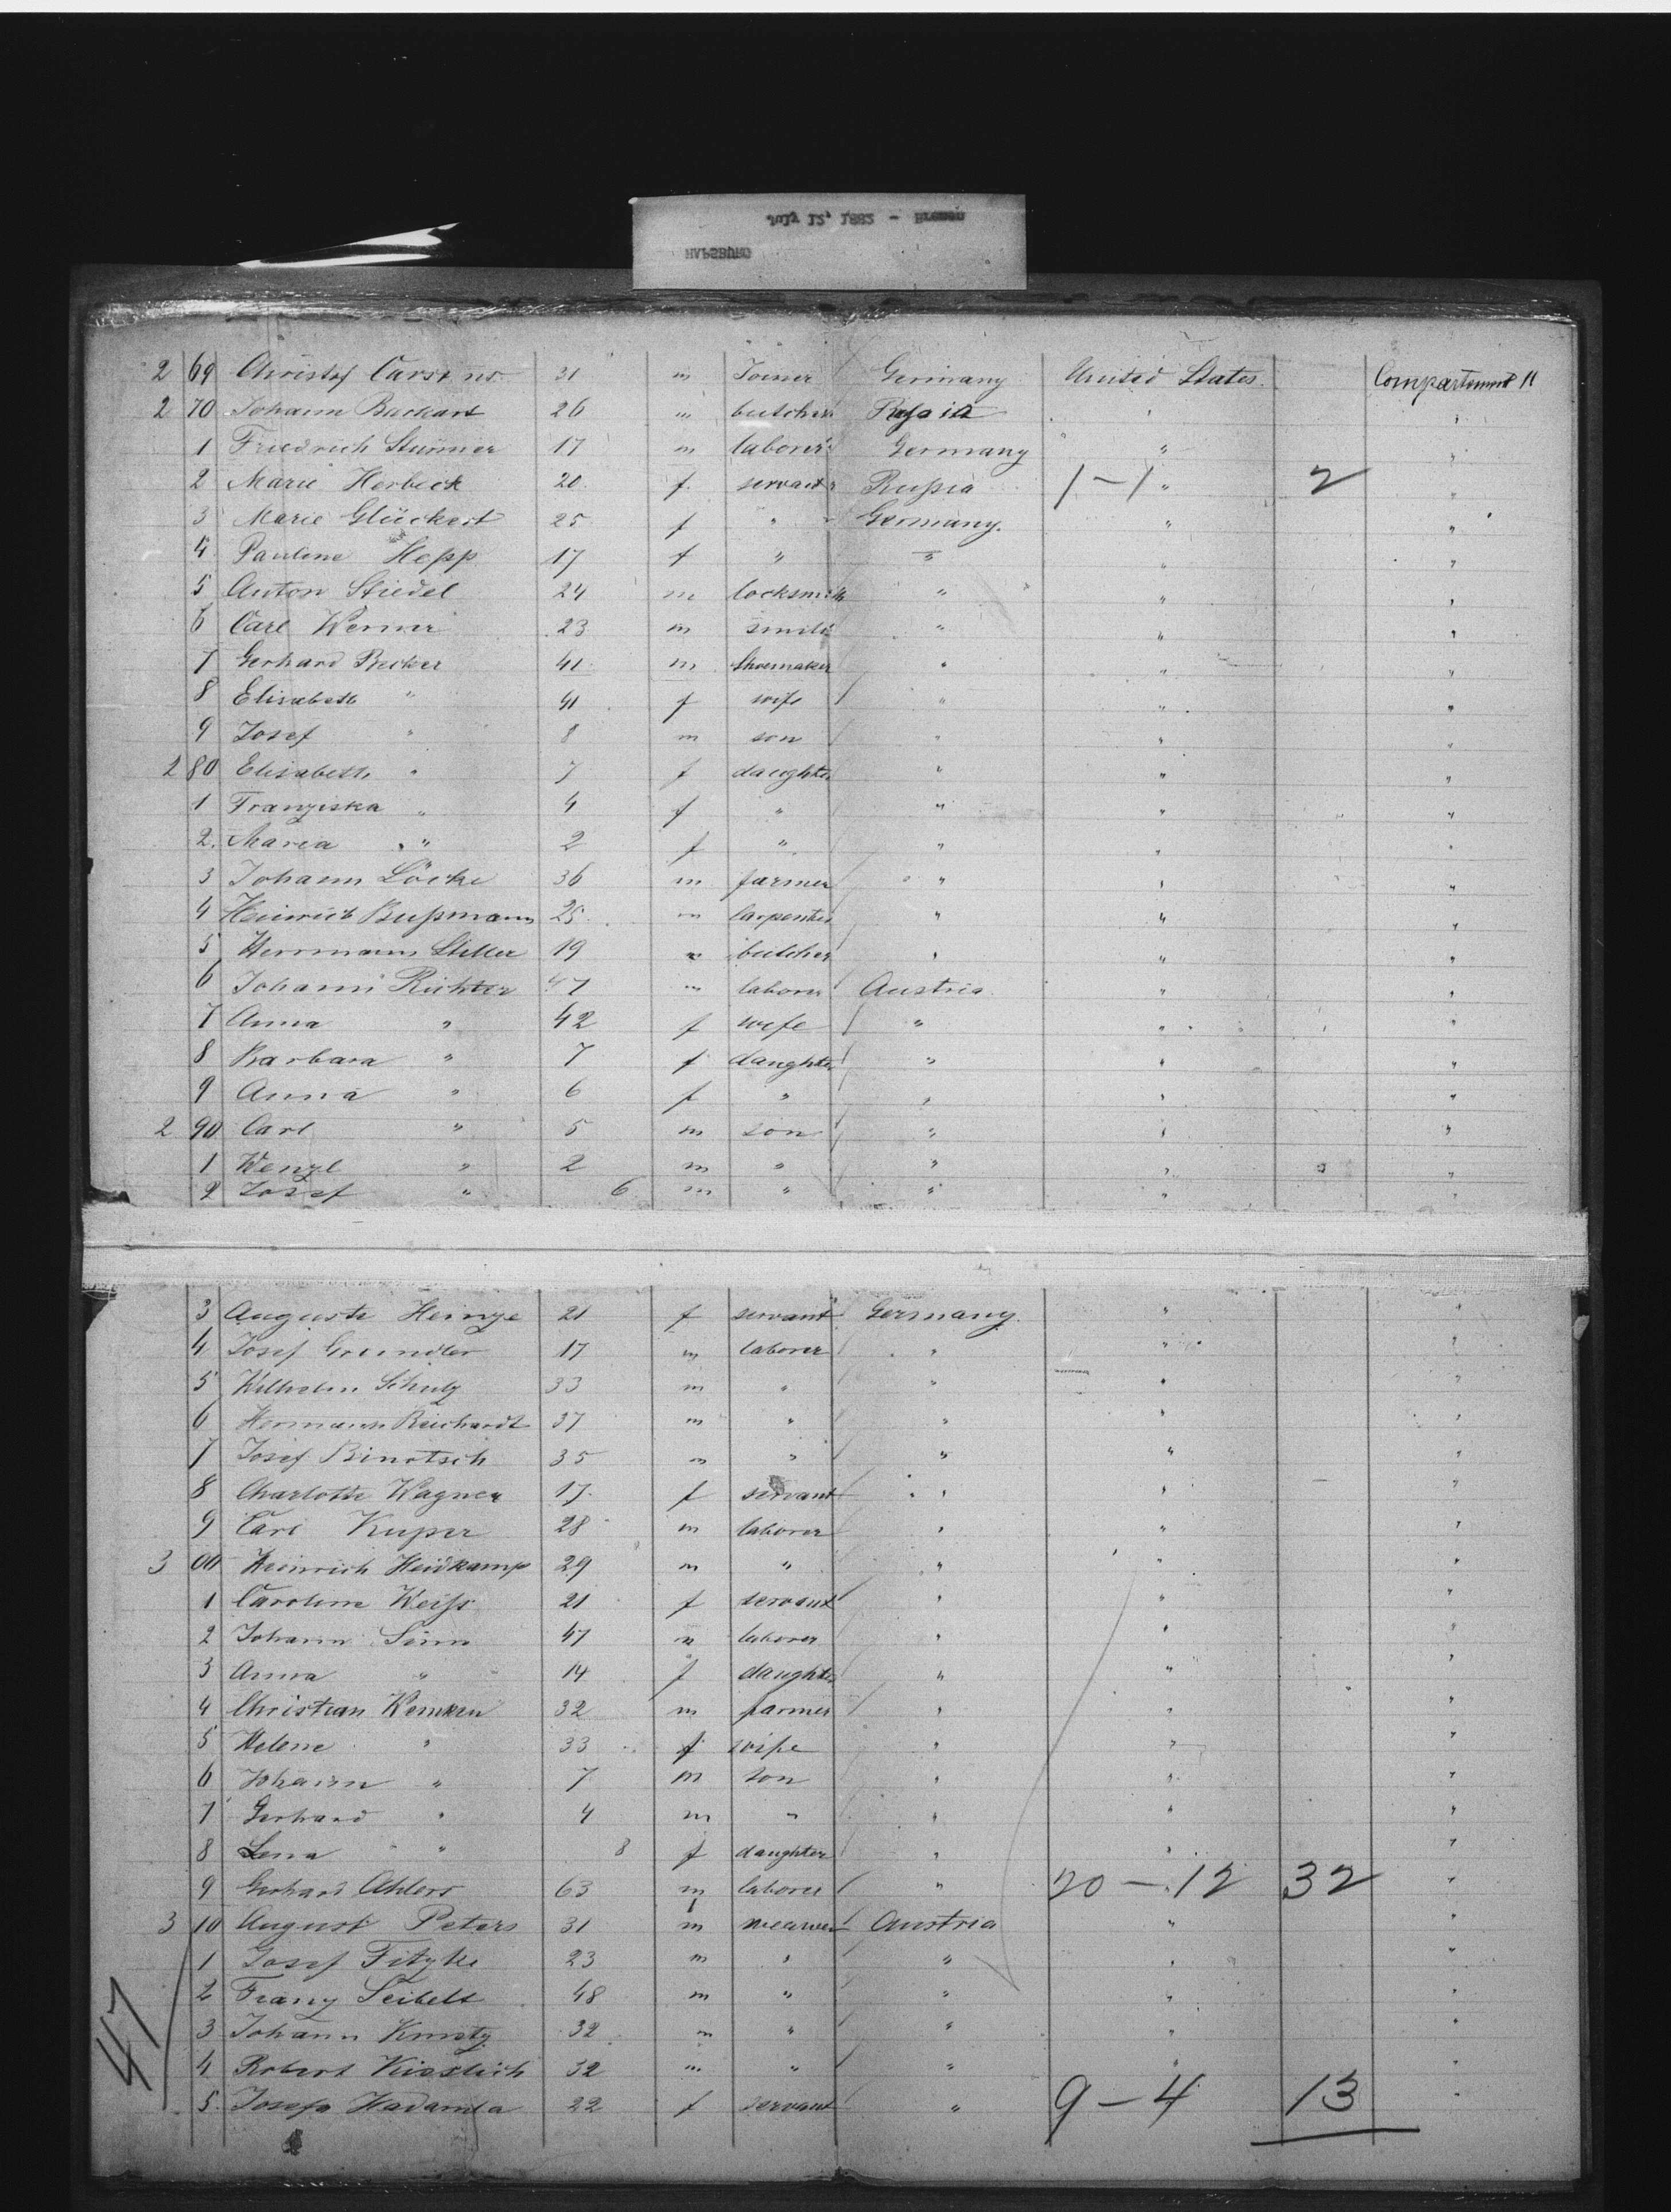 July 12, 1882 - Bremen
HAPSBURG
2 69 Christof Carstens 31 m Joiner Germany United States. Compartement 11
2 70 Johann Backart 26 m butcher Russia " "
1 Friedrich Stürmer 17 m laborer Germany " "
2 Marie Herbeck 20 f. servant Rußia 1-1 " 2 "
3 Marie Glückert 25 f " Germany. " "
4 Pauline Hepp 17 f " " " "
5 Anton Stiedel 24 m locksmith " " "
6 Carl Werner 23 m smith " " "
7 Gerhard Becker 41 m Shoemaker " " "
8 Elisabeth " 41 f wife " " "
9 Josef " 8 m son " " "
2 80 Elisabeth " 7 f daughter " " "
1 Franziska " 4 f " " " "
2. Maria " 2 f " " " "
3 Johann Löcke 36 m farmer " " "
4 Heinrich Bußmann 25 m Carpenter " " "
5 Herrmann Stiller 19 m butcher " " "
6 Johann Richter 47 m laborer Austria " "
7 Anna " 42 f wife " " "
8 Barbara " 7 f daughter " " "
9 Anna " 6 f " " " "
2 90 Carl " 5 m son " " "
1 Wenzl " 2 m " " " "
2 Josef " 6 m " " " "
3 Auguste Heinze 21 f servant Germany. " "
4 Josef Grundler 17 m laborer " " "
5 Wilhelm Schulz 33 m " " " "
6 Hermann Reichardt 37 m " " " "
7 Josef Binotsch 35 m " " " "
8 Charlotte Wagner 17. f servant " " "
9 Carl Kuper 28 m laborer " " "
3 00 Heinrich Heidkamp 29 m " " " "
1 Caroline Weiß 21 f servant " " "
2 Johann Sinn 47 m laborer " " "
3 Anna " 14 f daughter " " "
4 Christian Wemken 32 m farmer " " "
5 Helene " 33 f wife " " "
6 Johann " 7 m son " " "
7 Gerhard " 4 m " " " "
8 Lena " 8 f daughter " " "
9 Gerhard Ahlers 63 m laborer " 20 - 12 32 "
3 10 August Peters 31 m weawer Austria " "
1 Josef Fitzke 23 m " " " "
2 Franz Seibelt 48 m " " " "
3 Johann 32 m " " " "
4 Robert Kieslich 32 m " " " "
5. Josefa 22 f servant " 9 - 4 13 "
47